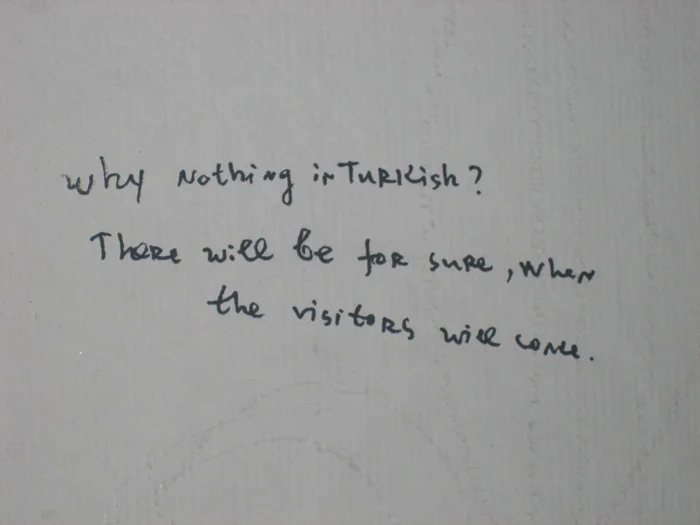 Why Nothing in Turkish?
There will be for sure, when
the visitors will come.